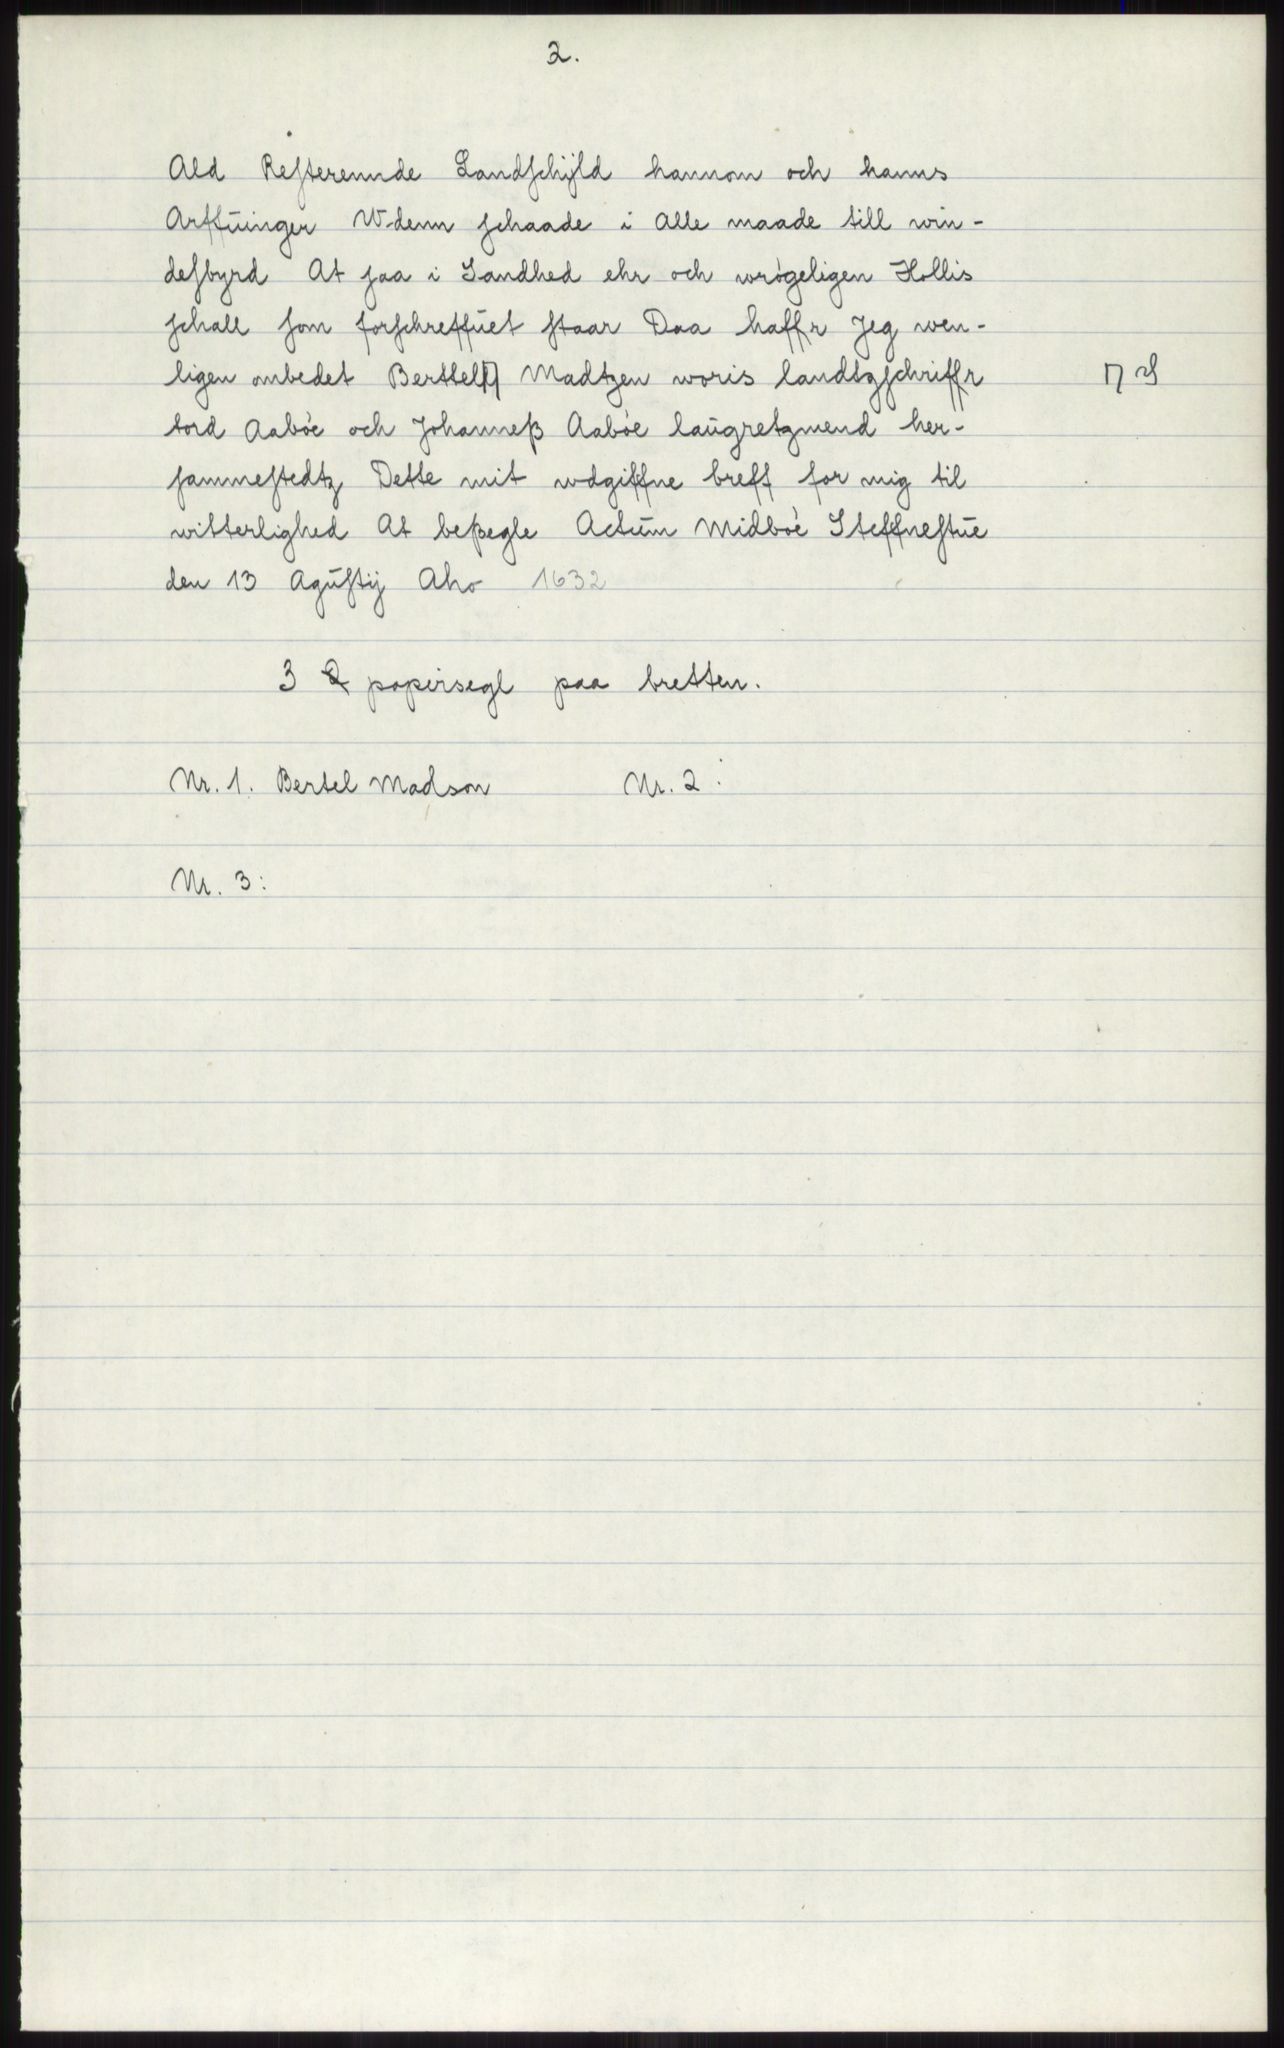 2.
Ald Resterennde Landschÿld hannom och hanns
Arffuinger Wdenn schaade i Alle maade till win-
desbyrd At saa i Sandhed ehr och wrøgeligen Hollis
schall som forschreffuet staar Daa haffr Jeg wen-
ligen ombedet Berttel Madtzen woris landtzschriffr
tord Aabøe och Johanneß Aabøe laugretzmend her-
sammestedtz Dette mit wdgiffne breff for mig til
witterlighed At beßegle Actum Midbøe Steffnestue
den 13 Agustij Aho 1632
3 papirsegl paa bretten.
Nr. 1. Bertel Madson Nr. 2:
Nr. 3: